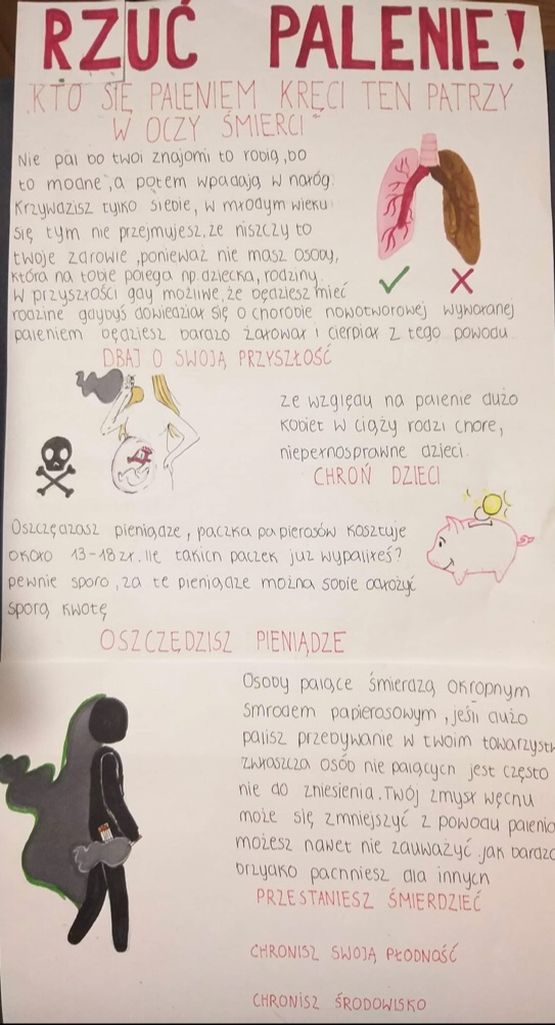 RZUĆ PALENIE!
"KTO SIĘ PALENIEM KRĘCI TEN PATRZY
W OCZY ŚMIERCI"
Nie pal bo twoi znajomi to robią, bo
to modne, a potem wpadają w nałóg.
Krzywdzisz tylko siebie, w młodym wieku
się tym nie przejmujesz, że niszczy to
twoje zdrowie, ponieważ nie masz osoby,
która na tobie polega np. dziecka, rodziny.
W przyszłości gdy możliwe, że będziesz mieć
rodzinę gdybyś dowiedział się o chorobie nowotworowej wywołanej
paleniem będziesz bardzo żałował i cierpiał z tego powodu
DBAJ O SWOJĄ PRZYSZŁOŚĆ
ze względu na palenie dużo
kobiet w ciąży rodzi chore,
niepełnosprawne dzieci.
CHROŃ DZIECI
Oszczędzasz pieniądze, paczka papierosów kosztuje
około 13-18 zł. Ile takich paczek już wypaliłeś?
pewnie sporo, za te pieniądze można sobie odłożyć
sporą kwotę
OSZCZĘDZISZ PIENIĄDZE
Osoby palące śmierdzą okropnym
smrodem papierosowym, jeśli dużo
palisz przebywanie w twoim towarzystw
zwłaszcza osób nie palących jest często
nie do zniesienia. Twój zmysł węchu
może się zmniejszyć z powodu palenia
możesz nawet nie zauważyć jak bardzo
brzydko pachniesz dla innych
PRZESTANIESZ ŚMIERDZIEĆ
CHRONISZ SWOJĄ PŁODNOŚĆ
CHRONISZ ŚRODOWISKO